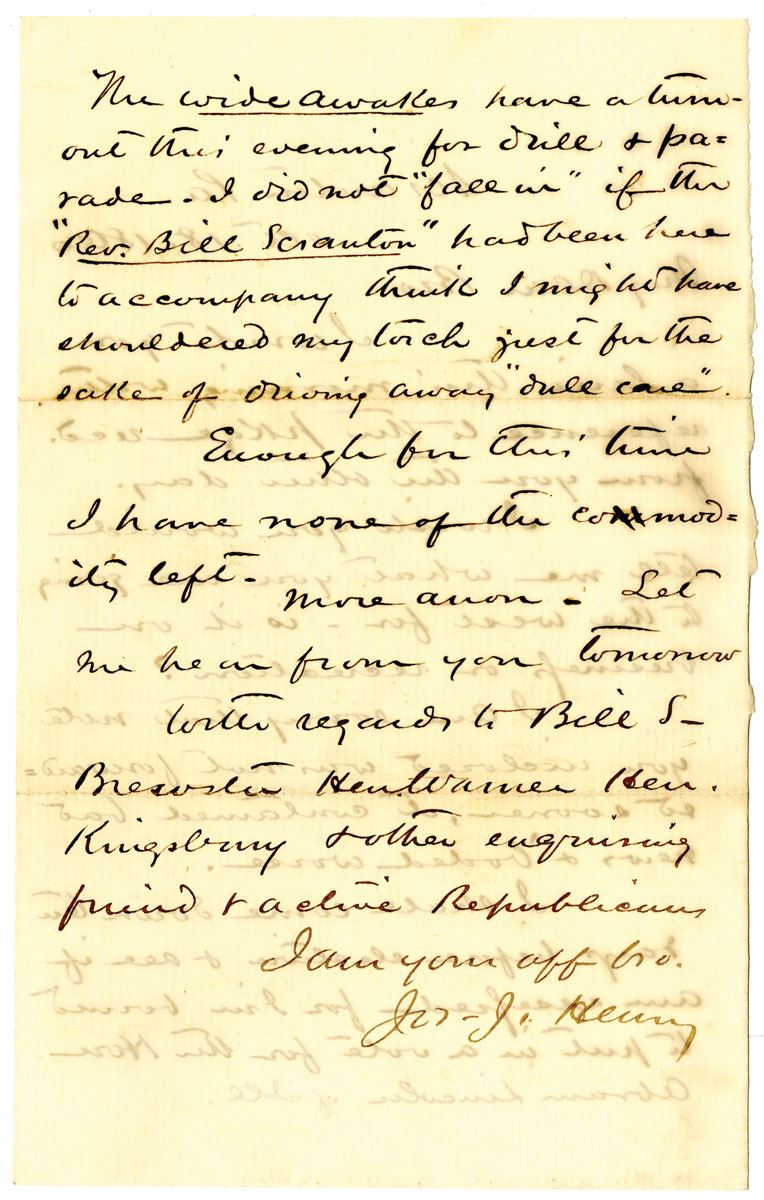 The wide awakes have a turn-
out this evening for drill & pa=
rade - I did not "fall in" if the
"Rev. Bill Scranton" had been here
to accompany think I might have
shouldered my torch just for the
sake of driving away "dull care".
Enough for this time
I have none of the commod=
ity left -
more anon - Let
me hear from you tomorrow
With regards to Bill S-
Brewster Hen. Warner Hen.
Kingsbury & other enquiring
friend & active Republicans
I am your aff bro.
Jos - J. Henry